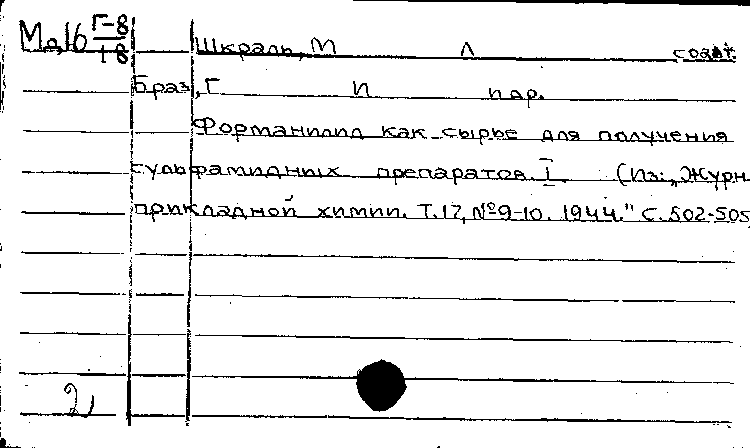 Мд,16 Г-8
+8
Шкраль, М Л соавт.
Браз, Г И пар.
Форманилид как сырье для получения
сульфамидных препаратов. I (Из: „Журн
прикладной химии. Т.17, №9-10. 1944." С.502-505
2